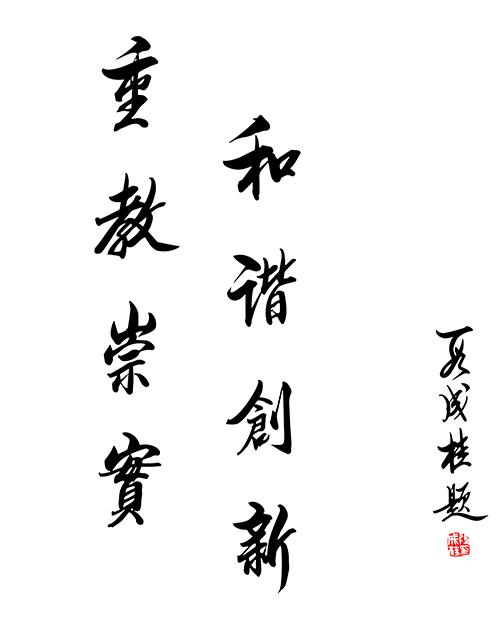 重教崇實
和谐創新
段成桂题